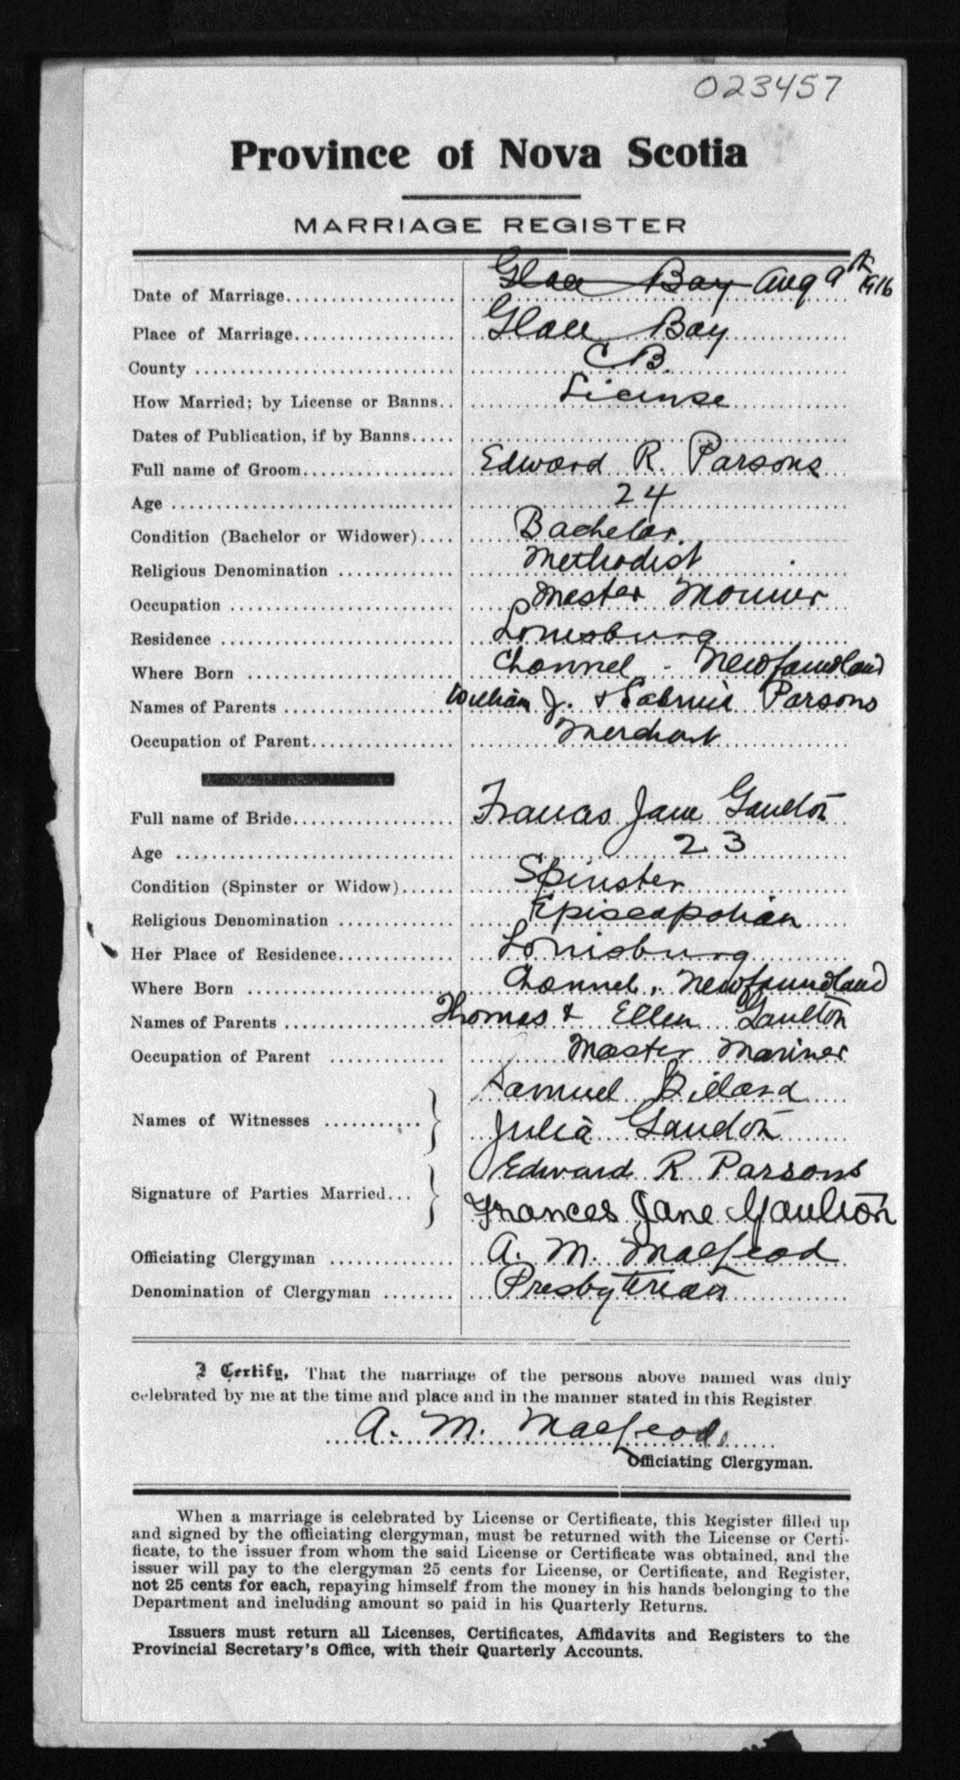 023457
Province of Nova Scotia
MARRIAGE REGISTER
Date of Marriage Glace Bay Aug 9th 1916
Place of Marriage Glace Bay
County C B.
How Married; by License or Banns License
Dates of Publication, if by Banns
Full name of Groom Edward R. Parsons
Age 24
Condition (Bachelor or Widower) Bachelor.
Religious Denomination Methodist
Occupation Master
Residence Louisburg
Where Born Channel - Newfoundland
Names of Parents William J. & Parsons
Occupation of Parent Merchant
Full name of Bride Frances Jane Gaulton
Age 23
Condition (Spinster or Widow) Spinster
Religious Denomination Episcapolian
Her Place of Residence Louisburg
Where Born Channel, Newfoundland
Names of Parents Thomas & Ellen Gaulton
Occupation of Parent Master Mariner
Names of Witnesses Samuel Billard
Julia Gaulton
Signature of Parties Married Edward R Parsons
Frances Jane Gaulton
Officiating Clergyman A. M. MacLeod
Denomination of Clergyman Presbyterian
I Certify, That the marriage of the persons above named was duly
celebrated by me at the time and place and in the manner stated in this Register
A. M. MacLeod,
Officiating Clergyman.
When a marriage is celebrated by License or Certificate, this Register filled up
and signed by the officiating clergyman, must be returned with the License or Certi-
ficate, to the issuer from whom the said License or Certificate was obtained, and the
issuer will pay to the clergyman 25 cents for License, or Certificate, and Register,
not 25 cents for each, repaying himself from the money in his hands belonging to the
Department and including amount so paid in his Quarterly Returns.
Issuers must return all Licenses, Certificates, Affidavits and Registers to the
Provincial Secretary's Office, with their Quarterly Accounts.